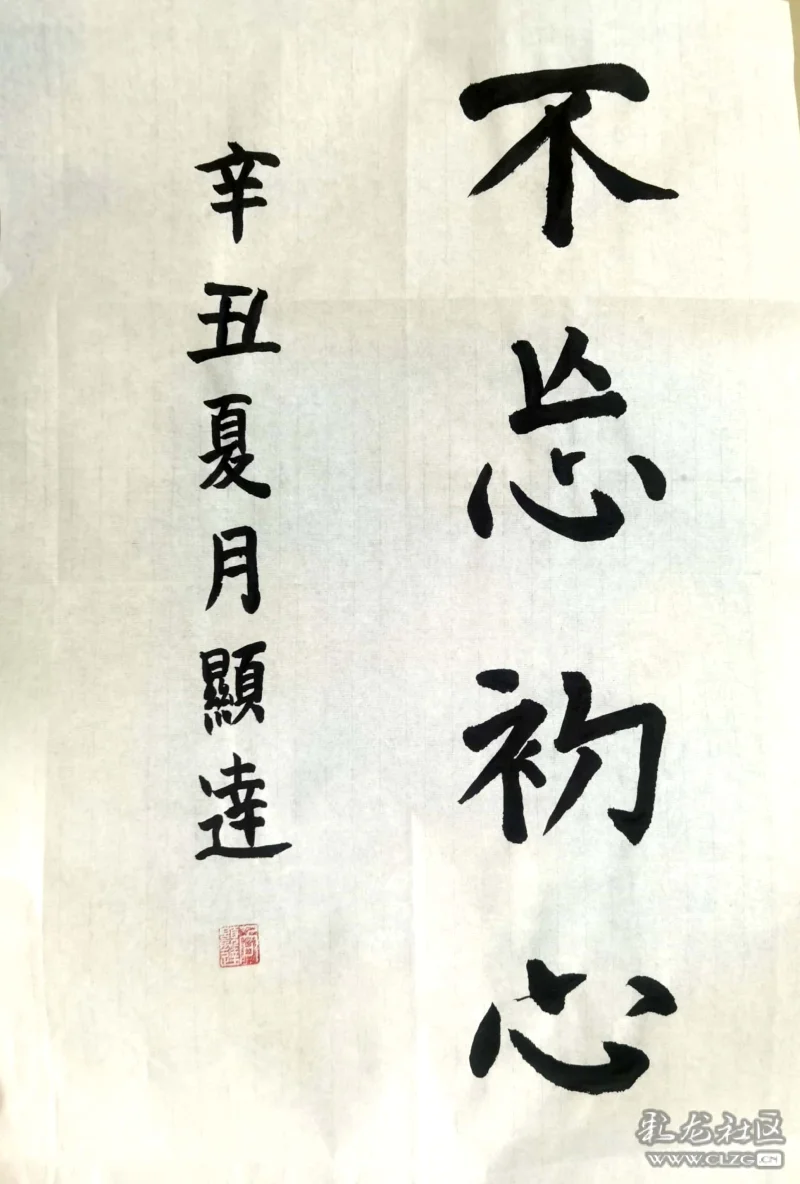 不忘初心
辛丑夏月顯達
彩龙社区
WWW.CLZG.CN